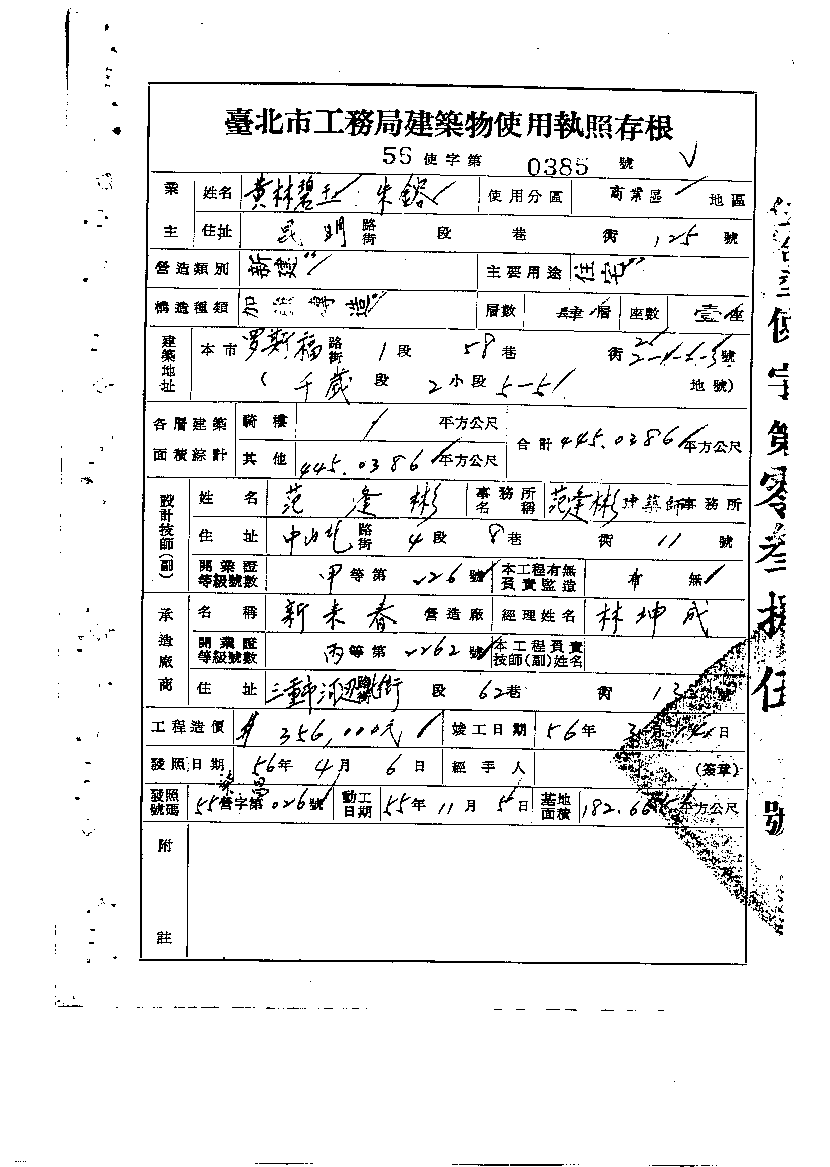 臺北市工務局建築物使用執照存根
56 使字第 0385 號
業主 姓名 黃林碧玉 朱鎔 使用分區 商業區 地區
住址 昆明 路街 段 巷 衖 125 號
營造類別 新建 主要用途 住宅
構造種類 加強磚造 層數 肆層 座數 壹座
建築地址 本市 罗斯福 路街 1段 58巷 衖 號
(千歲 段 2小段 5-51 地號)
各層建築面積綜計 騎樓 / 平方公尺 合計 445.0386 平方公尺
其他 445.0386 平方公尺
設計技師(副) 姓名 范逢彬 事務所名稱 范逢彬建築師事務所
住址 中山北 路街 4段 8巷 衖 11 號
開業證等級號數 甲等第 226 號 本工程有無負責監造 有 無
承造廠商 名稱 新來春 營造廠 經理姓名 林坤成
開業證等級號數 丙等第 2262 號 本工程負責技師(副)姓名
住址 三重市河边北街 段 62巷 衖 13
工程造價 356,000元 竣工日期 56年 3月 日
發照日期 56年 4月 6日 經手人 (簽章)
發照號碼 55營字第026號 動工日期 55年 11月 5日 基地面積 182.66 平方公尺
附註
使字第零叁捌伍號